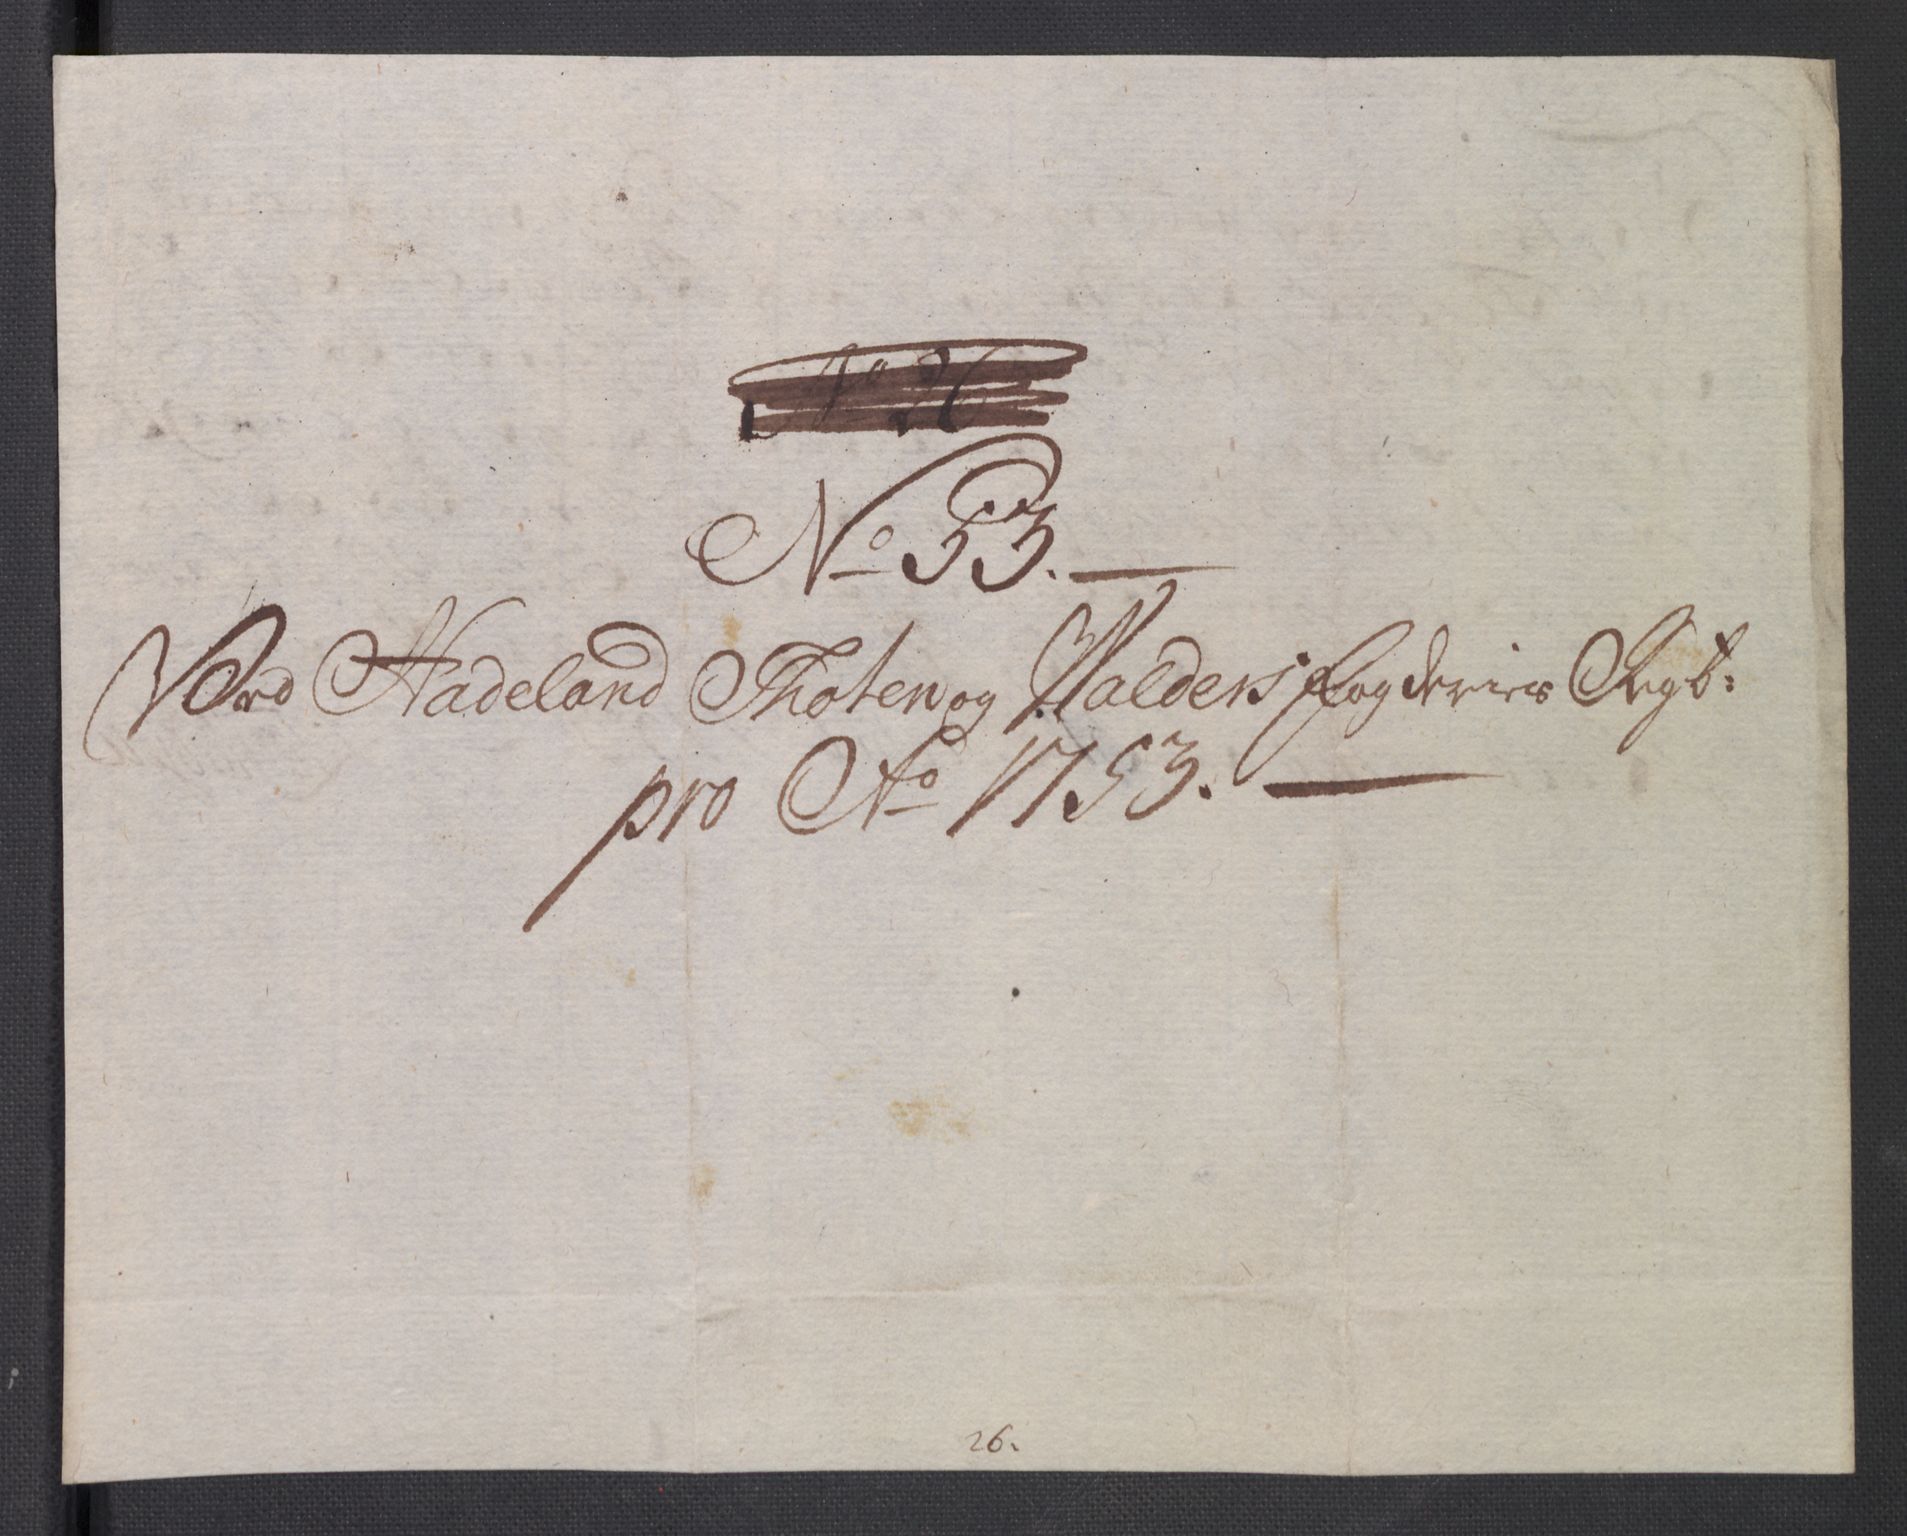 No 26
No 53.
Ved Hadeland Thoten og Valders fogderiers Regb:
pro Ao 1753.
26.